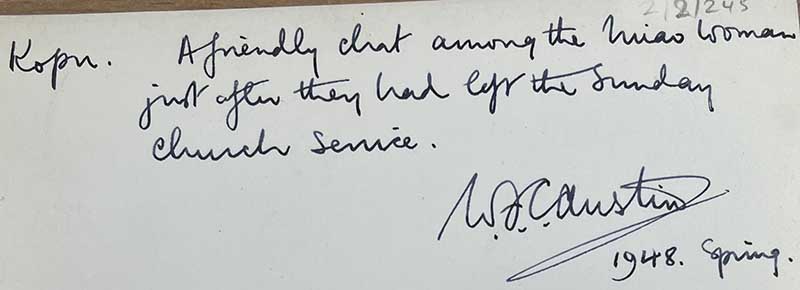 2/2/245
Kopu. A friendly chat among the Miao Woman
just after they had left the Sunday
church service.
W.J.C. Austin
1948. Spring.